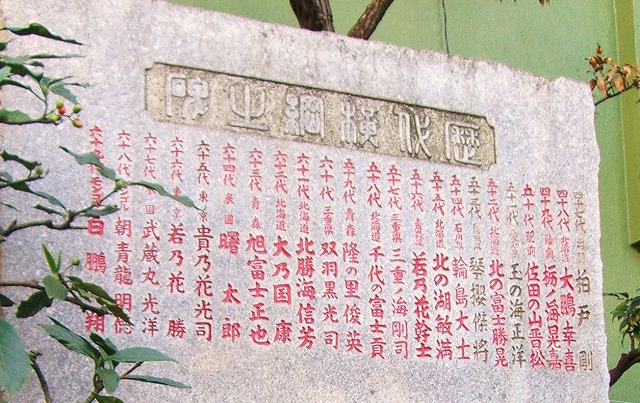 歴代横綱之碑
四十七代 柏戸剛
四十八代 北海道 大鵬幸喜
四十九代 栃ノ海晃嘉
五十代 佐田の山晋松
五十一代 玉の海正洋
五十二代 北海道 北の富士勝晃
五十三代 琴櫻傑将
五十四代 石川県 輪島大士
五十五代 北海道 北の湖敏満
五十六代 青森 若乃花幹士
五十七代 三重県 三重ノ海剛司
五十八代 北海道 千代の富士貢
五十九代 青森 隆の里俊英
六十代 三重県 双羽黒光司
六十一代 北海道 北勝海信芳
六十二代 北海道 大乃国康
六十三代 青森 旭富士正也
六十四代 米国 曙太郎
六十五代 東京 貴乃花光司
六十六代 東京 若乃花勝
六十七代 米国 武蔵丸光洋
六十八代 朝青龍明徳
六十九代 白鵬翔